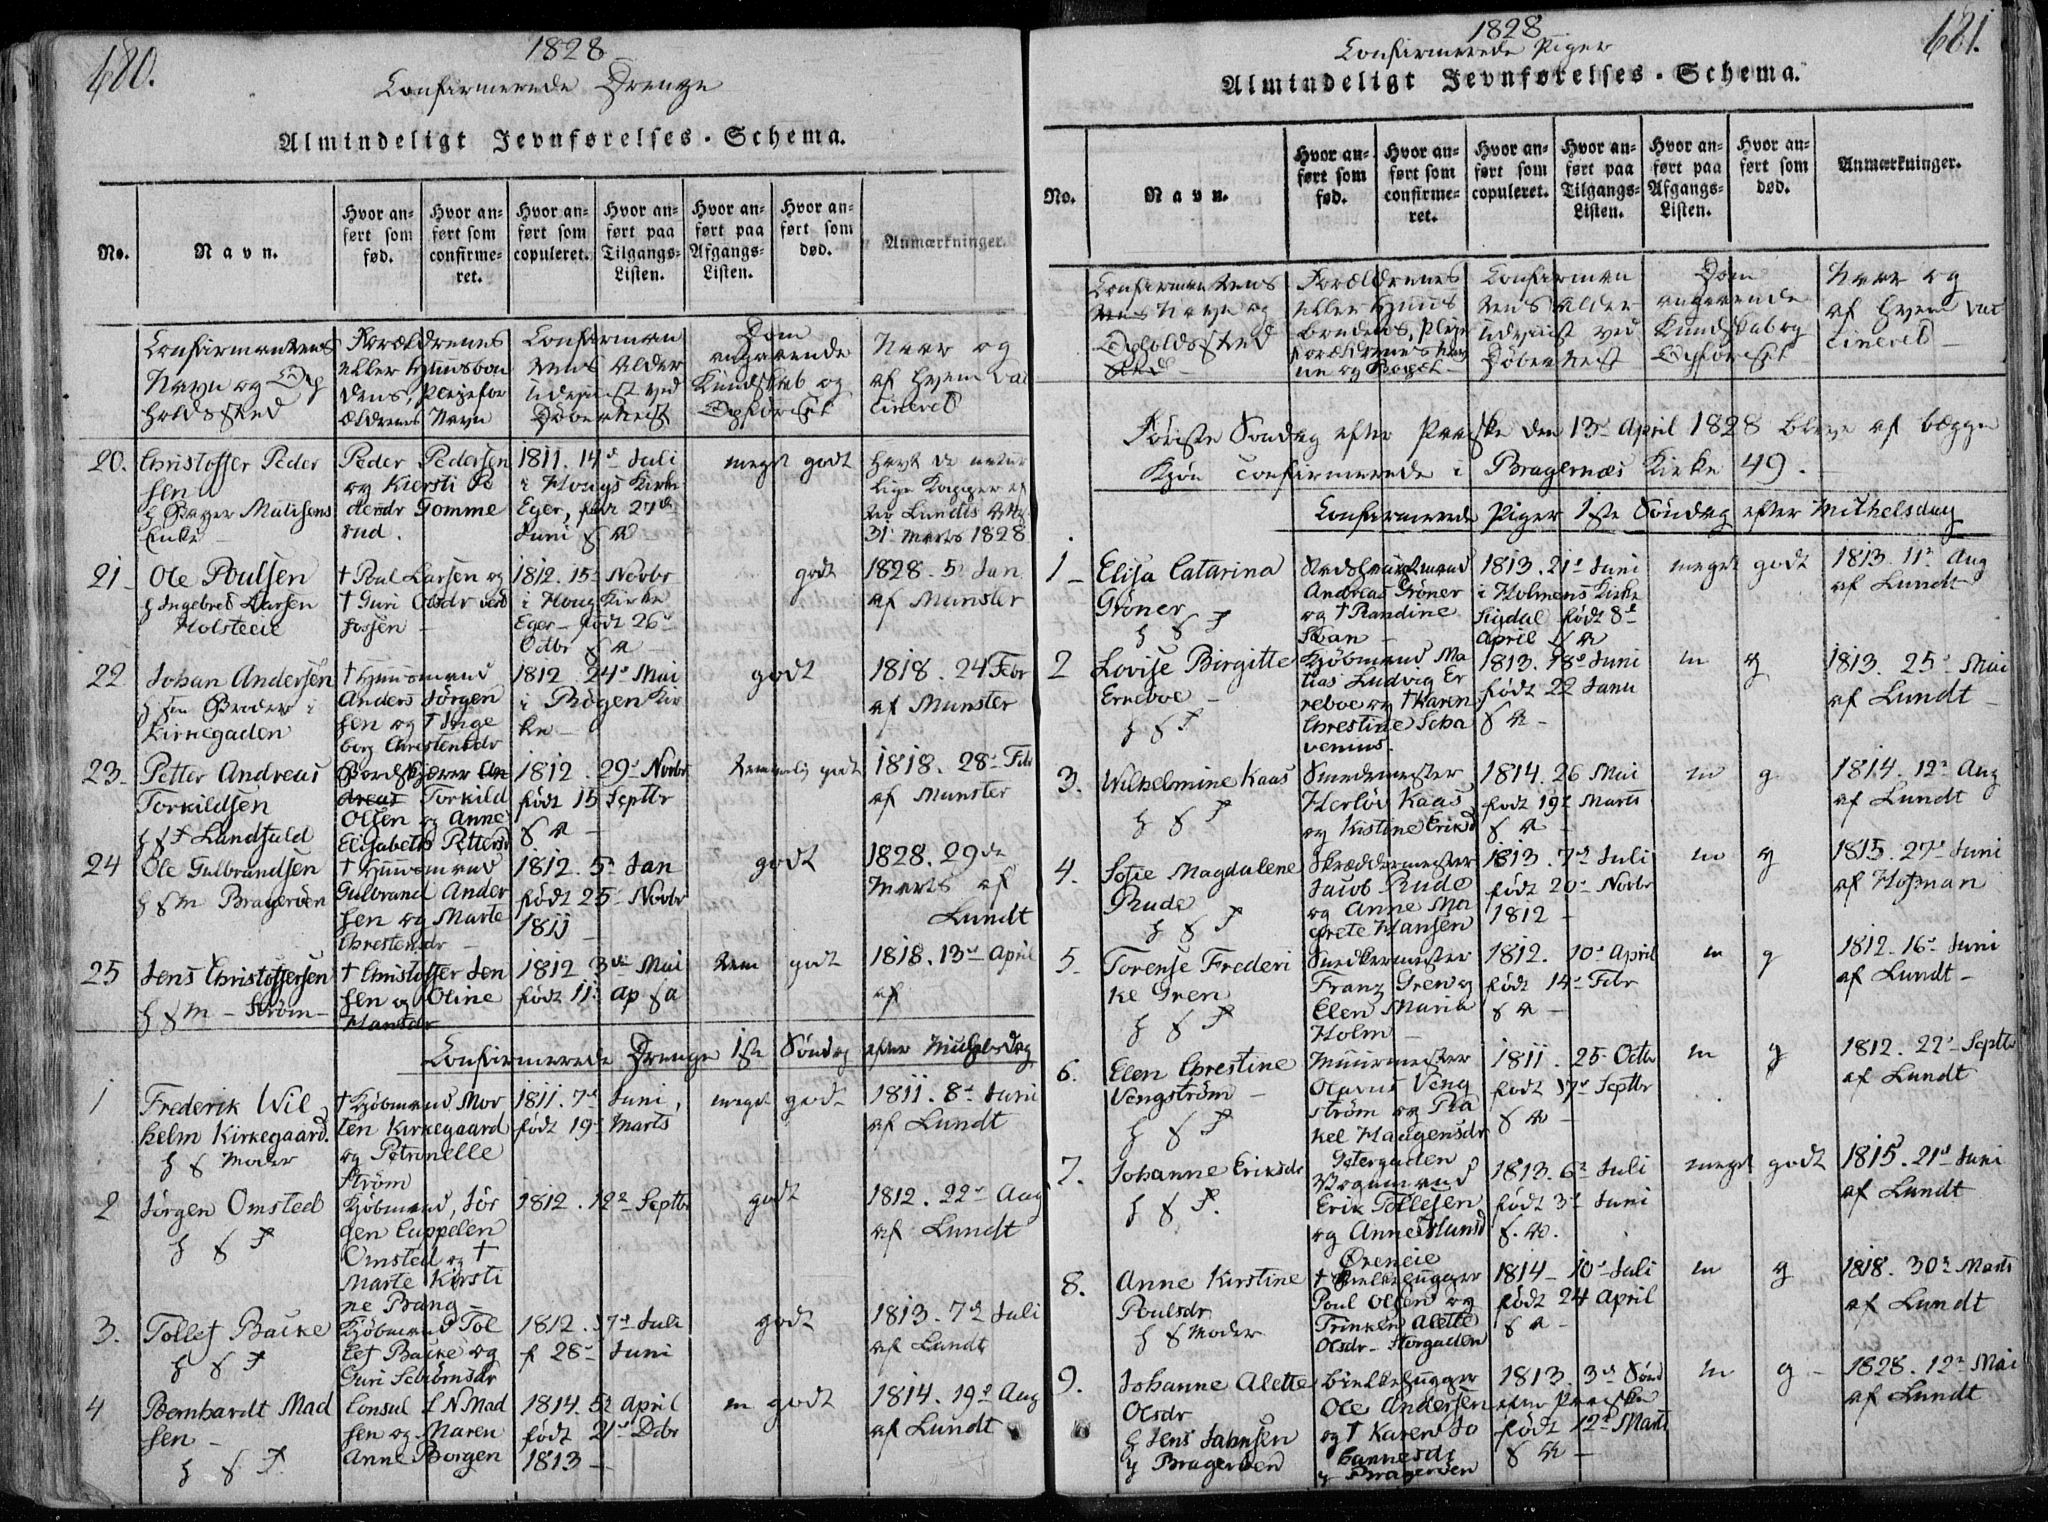 680.
1828
Confirmerede Drenge
Almindeligt Jevnførelses-Schema.
No.
Navn.
Hvor anført som fød.
Hvor anført som confirmeret.
Hvor anført som copuleret.
Hvor anført paa Tilgangs-Listen.
Hvor anført paa Afgangs-Listen.
Hvor anført som død.
Anmærkninger.
Confirmantens
Navn og Op
holdssted
Forældrenes
eller Huusbon
dens, Plejefor
ældrenes Navn
Confirman
tens Alder
udviist ved
Døbeattest
Dom
angaaende
Kundskab og
Opførsel
Naar og
af hvem Vac
cineret
20. Christoffer Peder
sen
Enke
Peder Pedersen
og Kiersti
Gomme
rud.
1811. 14de Juli
i Hougs Kirke
Eger, født 27de
Juni s A
meget godt
havt de natur
lige Kopper
Lundts Att
31 Marts 1828
21 Ole Poulsen
h Ingebret Larsen
† Poul Larsen og
† Guri Olsdr
fossen
1812. 15de Novbr
i Houg Kirke
Eger - født 26de
Octbr s A
godt
1828. 5te Jan
af Munster
22 Johan Andersen
h sin Broder i
Kirkegaden
† Huusmand
Anders Jørgen
sen og † Inge
borg Christensdr
1812. 24de Mai
i Røgen Kir
ke
godt
1818. 24 Febr
af Munster
23 Petter Andreas
Torkildsen
h s F Landfald
Torkild
Olsen og Anne
Elisabeth Pettersd
1812. 29de Novbr
født 15 Septbr
s A
temmelig godt
1818. 28de Febr
af Munster
24 Ole Gulbrandsen
h s M Bragerøen
† Huusmand
Gulbrand Ander
sen og Marte
Christensdr
1812. 5te Jan
født 25de Novbr
1811
godt
1828. 29de
Marts af
Lundt
25 Jens Christoffersen
h s M - Strøm
† Christoffer Jen
sen og Oline
Hansdr
1812 3die Mai
født 11te Ap s A
tem godt
1818. 13de April
af
Confirmerede Drenge 1ste Søndag efter Michelsdag
1 Frederik Wil
helm Kirkegaard.
h s Moder
† Kjøbmand Mor
ten Kirkegaard
og Petronelle
Strøm
1811. 7de Juni,
født 19de Marts
meget godt
1811. 8de Juni
af Lundt
2 Jørgen Omsted
h s F
Kjøbmand, Jør
gen Cappelen
Omsted og †
Marte Kirsti
ne Bang
1812. 12te Septbr
godt
1812. 22de Aug
af Lundt
3. Tollef Backe
h s F
Kjøbmand Tol
lef Backe og
Guri
1812. 17de Juli
f 28de Juni
godt
1813. 7de Juli
af Lundt
4 Bernhardt Mad
sen
h s F.
Consul J N Mad
sen og Maren
Anne Borgen
1814. 5te April
født 21de Dcbr
1813
m godt
1814. 19de Aug
af Lundt
681.
1828
Confirmerede Piger
Almindeligt Jevnførelses-Schema.
No.
Navn.
Hvor anført som fød.
Hvor anført som confirmeret.
Hvor anført som copuleret.
Hvor anført paa Tilgangs-Listen.
Hvor anført paa Afgangs-Listen.
Hvor anført som død.
Anmærkninger.
Confirmantens
Navn og
Opholdssted
Forældrenes
eller Huus
bondens, Pleje
forældrenes Nav
ne og Bopæl
Confirman
tens Alder
udviist ved
Døbeattest
Dom
angaaende
Kundskab og
Opførsel
Naar og
af hvem Vac
cineret
Første Søndag efter Paaske den 13de April 1828 bleve af begge
Kjøn confirmerede i Bragernæs Kirke 49.
Confirmerede Piger 1ste Søndag efter Mikkelsdag
1 Elisa Catarina
Grøner
h s F
Andreas Grøner
og † Randine
1813. 21de Juni
i Holmens Kirke
Sigdal født 8de
April s A
meget godt
1813. 11te Aug
af Lundt
2 Lovise Birgitte
Erneboe
h s F
Kjøbmand Ma
tias Ludvig Er
neboe og † Karen
Christine Scha
venius.
1813. 18de Juni
født 22 Janu
s A
m g
1813. 25de Mai
af Lundt
3. Wilhelmine Kaas
h s F
Smedemester
Herløv Kaas
og Kistine Eriksd
1814. 26 Mai
født 19de Marts
s A
m g
1814. 12te Aug
af Lundt
4. Sofie Magdalene
Rude
h s F
Skræddermester
Jacob Rude
og Anne Ma
grete Hansen
1813. 7de Juli
født 20de Novbr
1812
m g
1815. 27de Juni
af Hofman
5 Torense Frederi
ke Gren
h s F
Snedkermester
Franz Gren og
Elen Maria
Holm
1812. 10de April
født 14de Febr
s A
m g
1812. 16de Juni
af Lundt
6. Elen Christine
Vengstrøm
h s F
Muurmester
Olavus Veng
strøm og Ra
kel Haagensdr
1811. 25de Octbr
født 17de Septbr
s A
m g
1812. 22de Septbr
af Lundt
7. Johanne Eriksdr
h s F.
Vognmand
Erik Tollesen
og Anne
1813. 6te Juli
født 3de Juni
s. A.
meget godt
1815. 21de Juni
af Lundt
8. Anne Kirstine
Poulsdr
h s Moder
Øreneie
† Bielkehugger
Poul Olsen og
Trinken Alette
Olsdr - Storgaden
1814 - 10de Juli
født 24 April
s A
m g
1818. 30te Marts
af Lundt
9. Johanne Alette
Olsdr
h Jens Jahnsen
Bragerøen
Bielkehugger
Ole Andersen
og † Karen Jo
hannesdr
Bragerøen
1813. 3de Sønd
efter Paaske
født 12te Marts
s A
m g
1828. 12te Mai
af Lundt